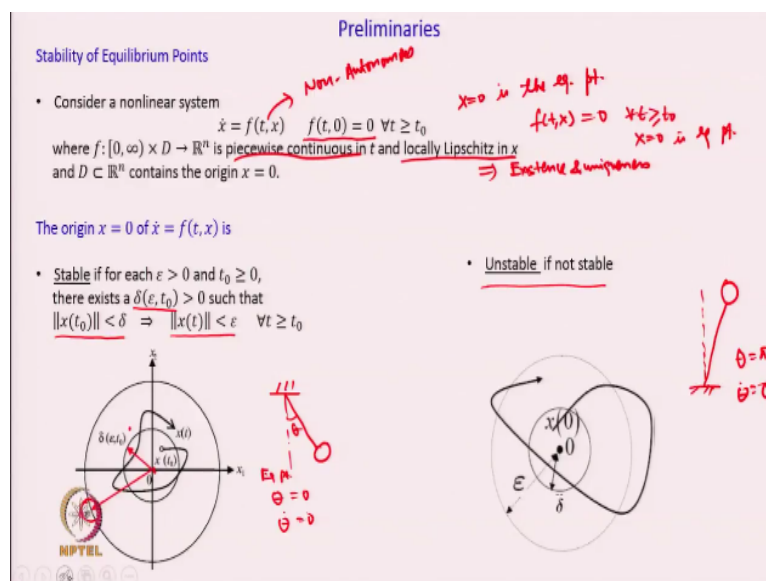 Preliminaries
Stability of Equilibrium Points
Non-Autonomous
• Consider a nonlinear system
ẋ = f(t, x) f(t, 0) = 0 ∀t ≥ t₀
where f: [0, ∞) × D → ℝⁿ is piecewise continuous in t and locally Lipschitz in x
and D ⊂ ℝⁿ contains the origin x = 0.
x=0 is the eq. pt.
f(t,x) = 0 ∀t≥t₀
x=0 is eq pt.
⇒ Existence & uniqueness
The origin x = 0 of ẋ = f(t, x) is
• Stable if for each ε > 0 and t₀ ≥ 0,
there exists a δ(ε, t₀) > 0 such that
‖x(t₀)‖ < δ ⇒ ‖x(t)‖ < ε ∀t ≥ t₀
• Unstable if not stable
x₂
δ(ε,t₀)
x(t)
x(t₀)
0
x₁
θ
Eq pt.
θ = 0
θ̇ = 0
NPTEL
x(0)
0
ε
δ
θ = π
θ̇ = 0